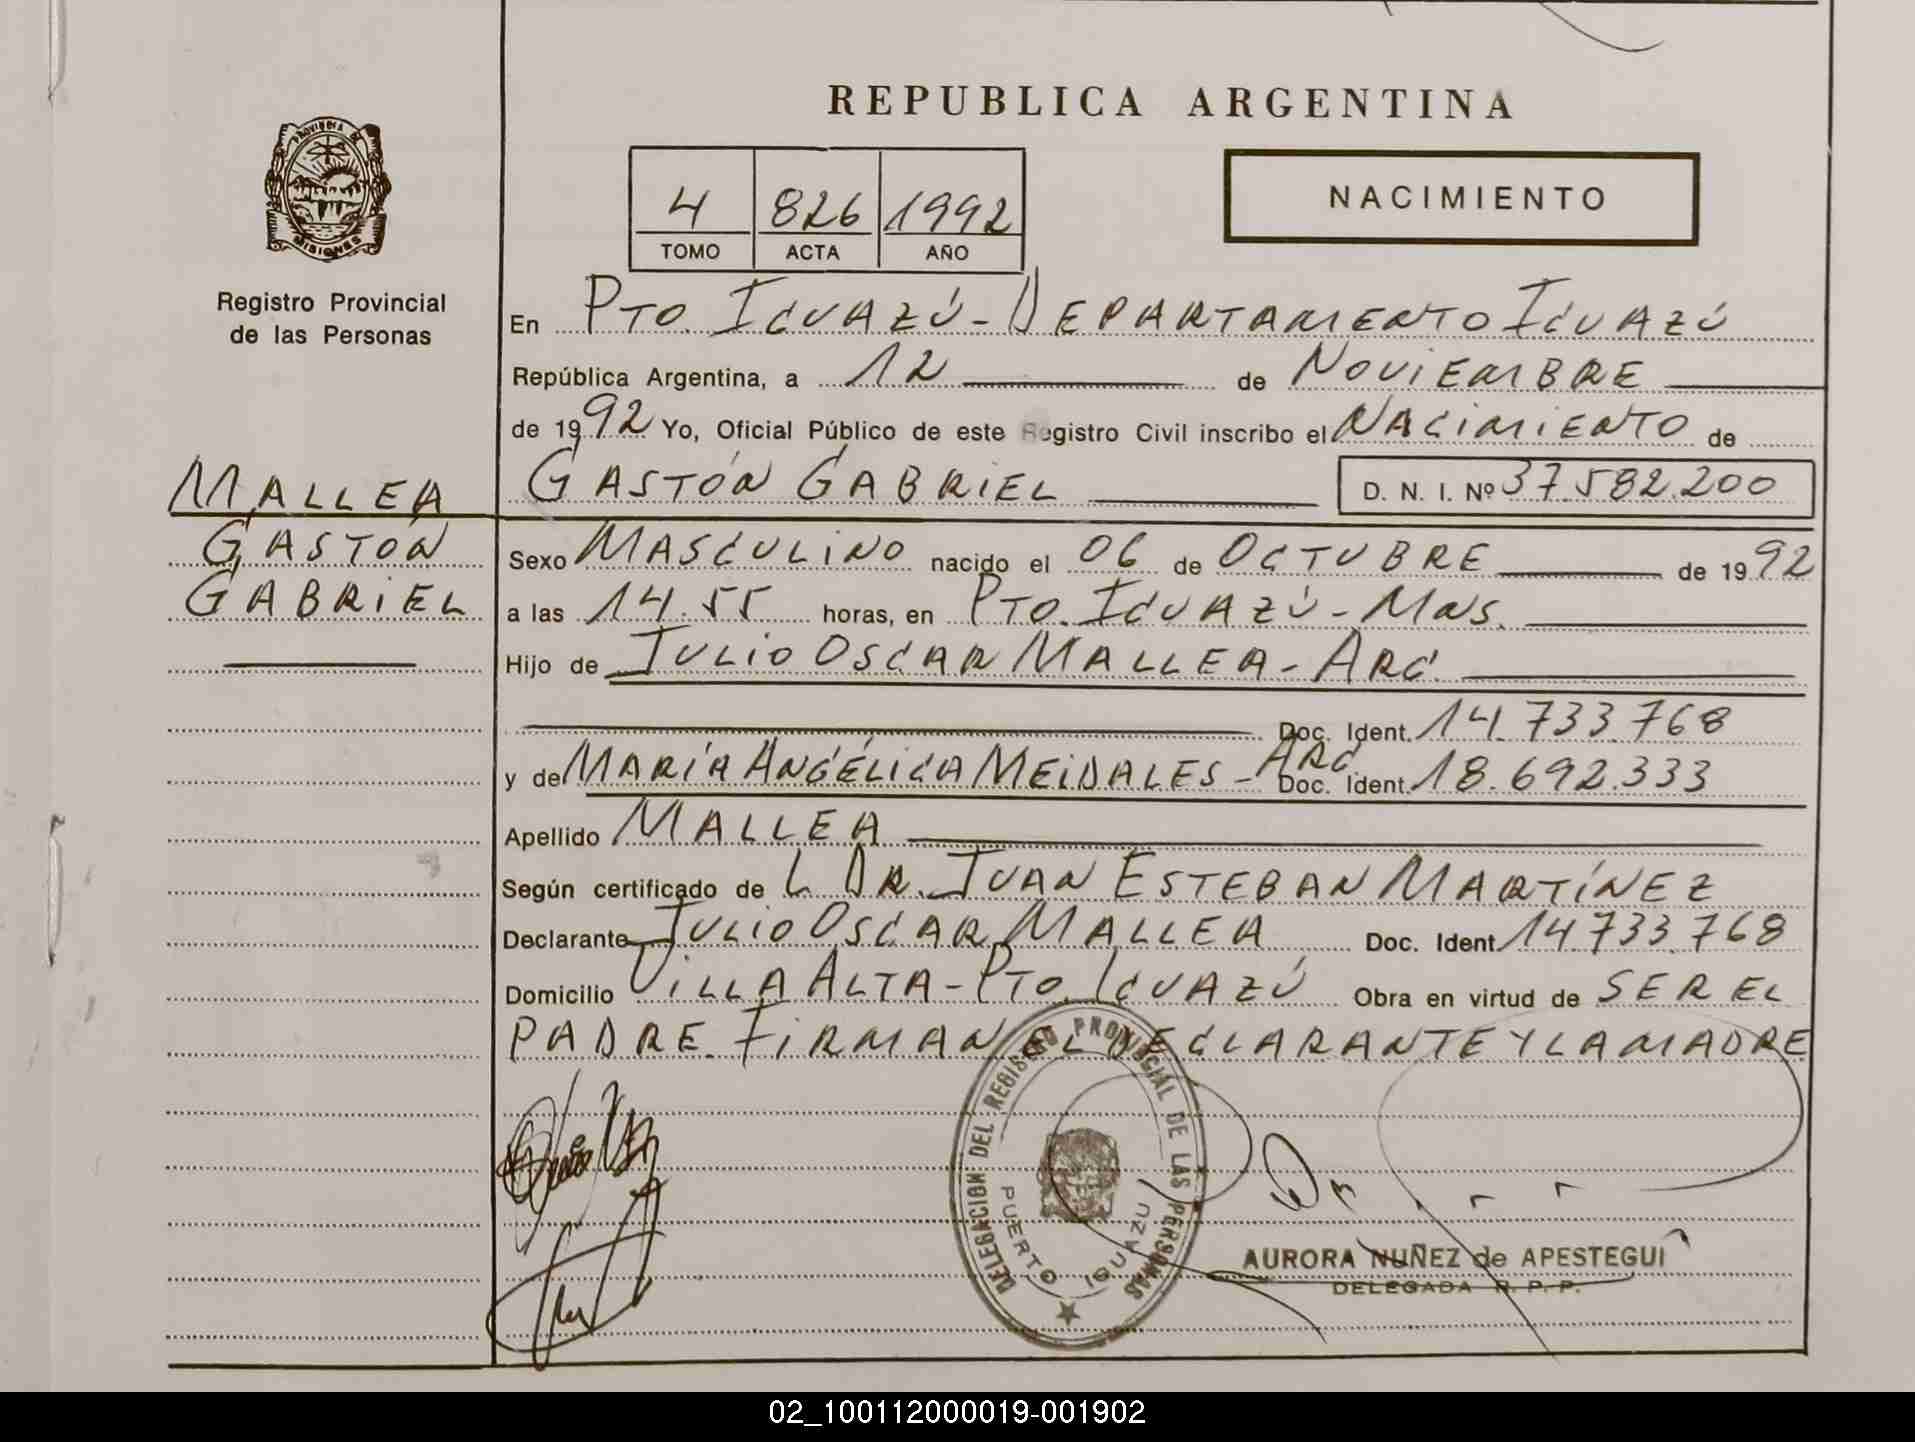 REPUBLICA ARGENTINA
PROVINCIA DE
MISIONES
Registro Provincial
de las Personas
4 826 1992
TOMO ACTA AÑO
NACIMIENTO
En PTO. IGUAZÚ - DEPARTAMENTO IGUAZÚ
República Argentina, a 12 de NOVIEMBRE
de 1992 Yo, Oficial Público de este Registro Civil inscribo el NACIMIENTO de
GASTÓN GABRIEL D. N. I. Nº 37.582.200
MALLEA
GASTON
GABRIEL
Sexo MASCULINO nacido el 06 de OCTUBRE de 1992
a las 14.55 horas, en PTO. IGUAZÚ - MNS.
Hijo de JULIO OSCAR MALLEA - ARG.
Doc. Ident. 14.733.768
y de MARÍA ANGÉLICA MEIDALES - ARG. Doc. Ident. 18.692.333
Apellido MALLEA
Según certificado de L DR. JUAN ESTEBAN MARTÍNEZ
Declarante JULIO OSCAR MALLEA Doc. Ident. 14.733.768
Domicilio VILLA ALTA - PTO. IGUAZÚ Obra en virtud de SER EL
PADRE. FIRMAN EL DECLARANTE Y LA MADRE
DELEGACION DEL REGISTRO PROVINCIAL DE LAS PERSONAS
PUERTO IGUAZU
AURORA NUÑEZ de APESTEGUI
DELEGADA R. P. P.
02_100112000019-001902